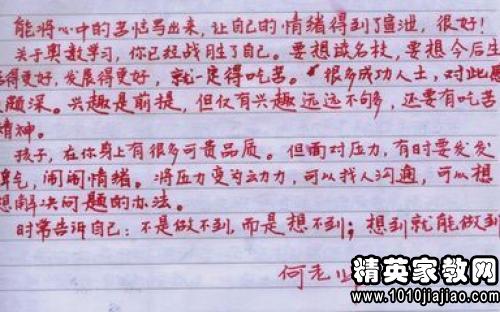 能将心中的苦恼写出来,让自己的情绪得到了宣泄,很好!
关于奥数学习,你已经战胜了自己。要想读名校,要想今后生
得更好,发展得更好,就一定得吃苦。很多成功人士,对此感
颇深。兴趣是前提,但仅有兴趣远远不够,还要有吃苦
精神。
孩子,在你身上有很多可贵品质。但面对压力,有时要发发
脾气,闹闹情绪。将压力变为动力,可以找人沟通,可以想
想解决问题的办法。
时常告诉自己:不是做不到,而是想不到;想到就能做到
何老
精英家教网
www.1010jiajiao.com